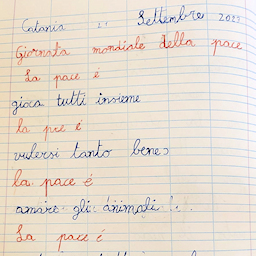 Catania 21 Settembre 2023
Giornata mondiale della pace
La pace è
gioca tutti insieme
la pce è
vulersi tanto bene
la pace è
amare gli animali!
La pace è